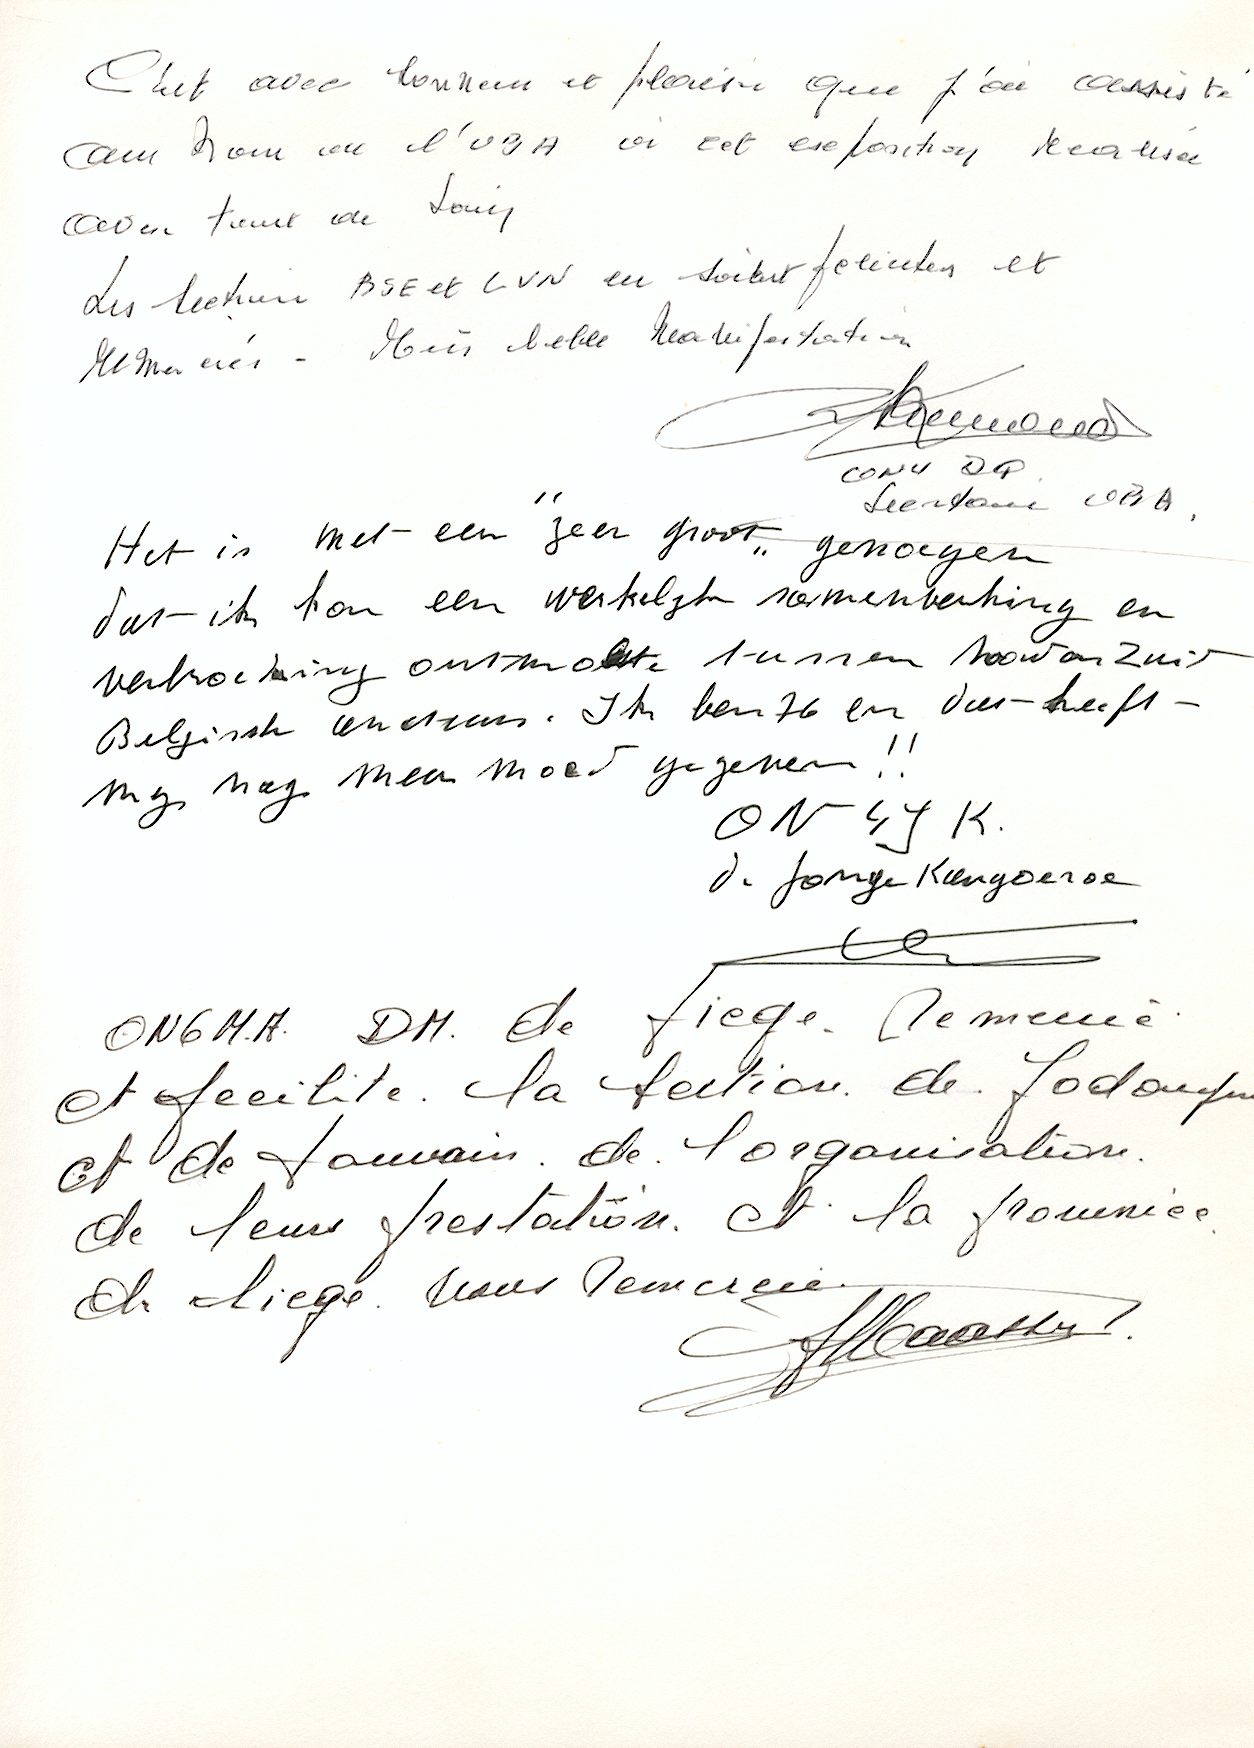 C'est avec honneur et plaisir que j'ai assisté
au nom de l'UBA à cet exposition réalisée
avec tant de soin
Les section BSE et LVN en soient felicitées et
remerciés - Très belle manifestation
ON4
Secretaire UBA.
Het is met een "zeer groot" genoegen
dat ik hier een werkelijke samenwerking en
verbroedering ontmoette tussen Noord en Zuid
Belgische amateurs. Ik ben 76 en dat heeft
mij nog meer moed gegeven!!
ON4JK.
de jonge Kangoeroe
ON6MA. DM. de Liege. Remercie
et felicite. la section. de. Jodoigne
et de Louvain. de. l'organisation.
de leurs prestation. et la province.
de Liege. vous remercie.